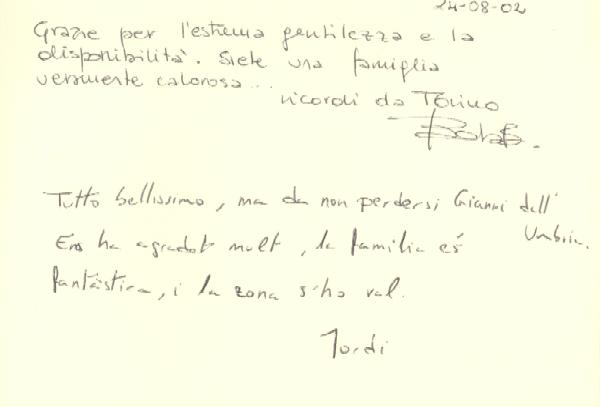 24-08-02
Grazie per l'estrema gentilezza e la
disponibilità. Siete una famiglia
veramente calorosa...
ricordi da Torino
Tutto bellissimo, ma da non perdersi Gianni dell'
Umbria.
Ens ha agradat molt, la familia és
fantàstica, i la zona s'ho val.
Jordi